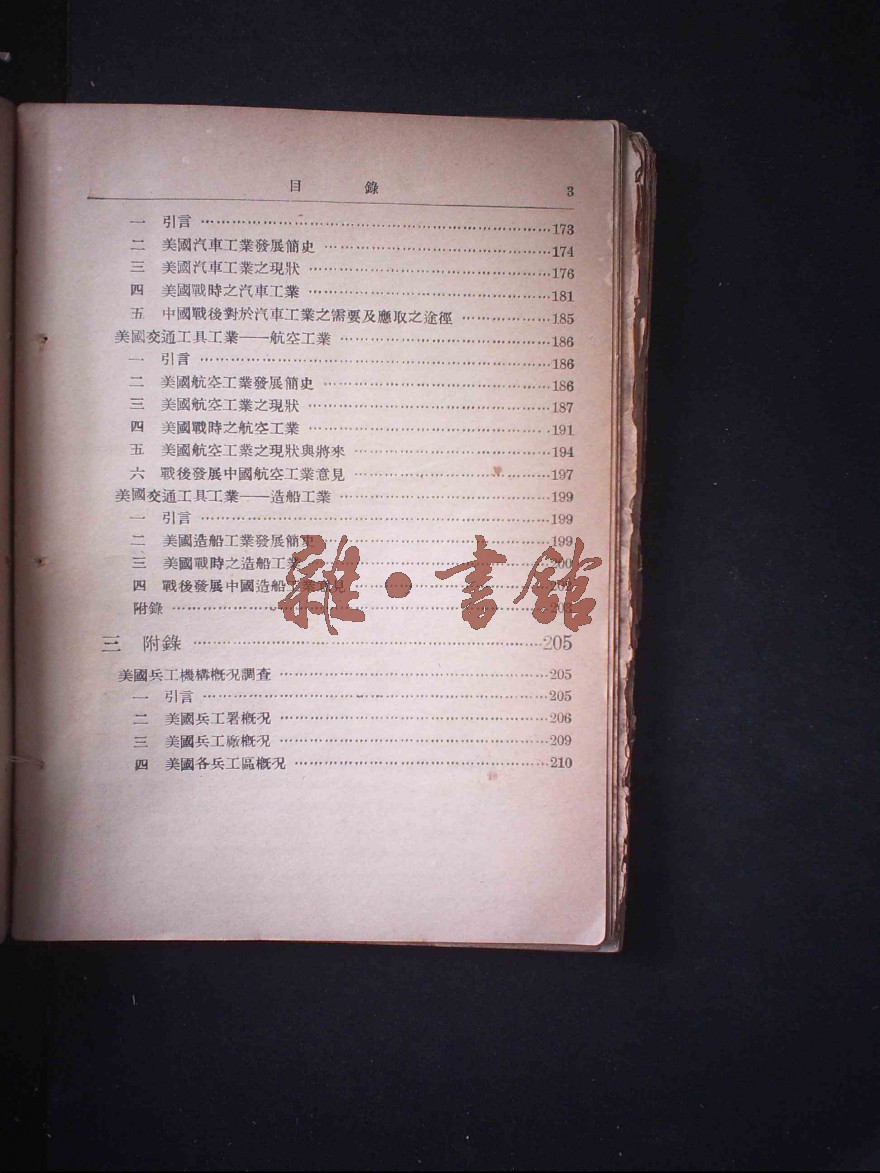 目 錄 3
一 引言 ……………………………………………173
二 美國汽車工業發展簡史 ……………………………174
三 美國汽車工業之現狀 ………………………………176
四 美國戰時之汽車工業 ………………………………181
五 中國戰後對於汽車工業之需要及應取之途徑 …………185
美國交通工具工業——航空工業 …………………………186
一 引言 ……………………………………………186
二 美國航空工業發展簡史 ……………………………186
三 美國航空工業之現狀 ………………………………187
四 美國戰時之航空工業 ………………………………191
五 美國航空工業之現狀與將來 …………………………194
六 戰後發展中國航空工業意見 …………………………197
美國交通工具工業——造船工業 …………………………199
一 引言 ……………………………………………199
二 美國造船工業發展簡史 ……………………………199
三 美國戰時之造船工業 ………………………………200
四 戰後發展中國造船工業意見 …………………………
附錄 ………………………………………………
三 附錄 ……………………………………………205
美國兵工機構概況調查 …………………………………205
一 引言 ……………………………………………205
二 美國兵工署概況 …………………………………206
三 美國兵工廠概況 …………………………………209
四 美國各兵工區概況 ………………………………210
雜·書館